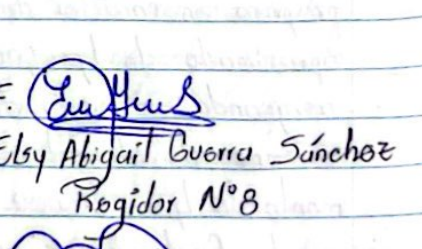 F.
Elsy Abigail Guerra Sánchez
Regidor N°8